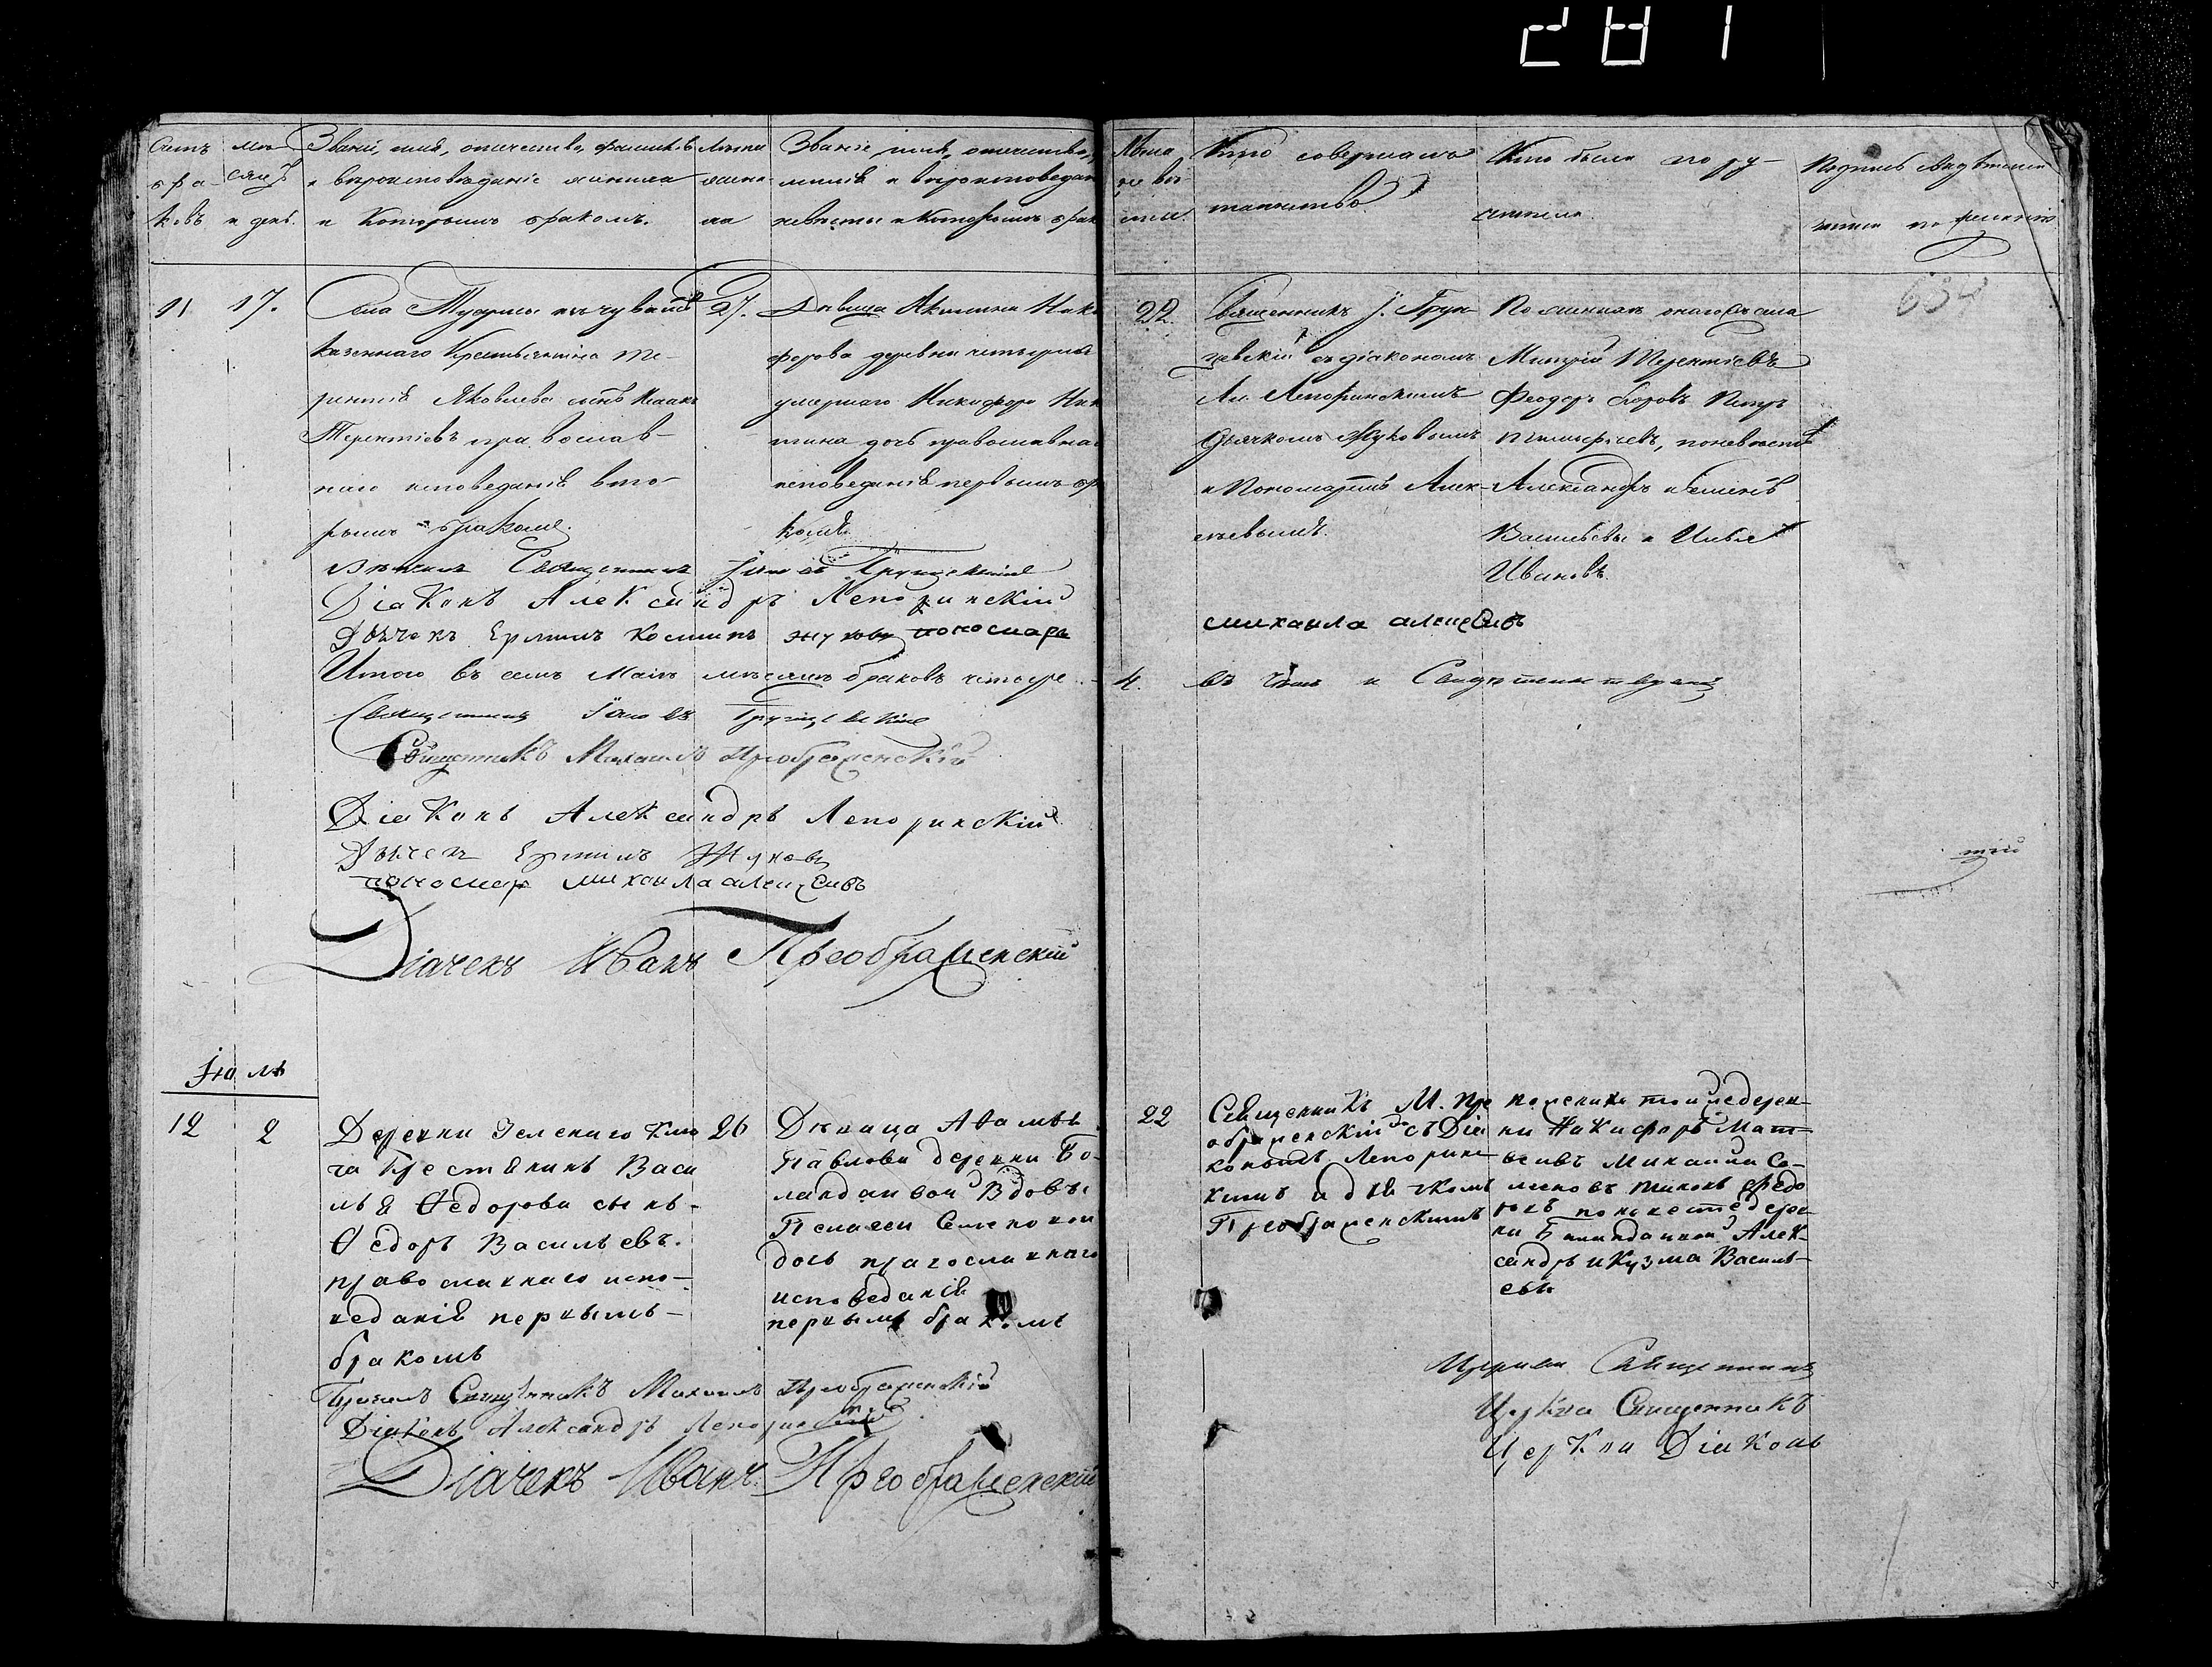 281
Счетъ бра-ковъ
мѣсяцъ и день.
Званіе, имя, отчество, фамилія
и вѣроисповѣданіе жениха
и которымъ бракомъ.
Лѣта
жени-
ха
Званіе имя, отчество,
милія и вѣроисповедан
невѣсты и которымъ брак
Лѣта
не вѣ
сты.
Кто совершалъ
таинство
Кто были пору-
чители
Подпись свидѣтелей
записи по желанію
11
17.
Села
казеннаго Крестьянина Те-
рентія Яковлева сынъ Исаакъ
Терентіевъ православ-
наго исповеданія вто-
рымъ бракомъ.
27.
Дѣвица Акилина Ники
форова деревни
умершаго Никифора Ник
тина дочь православнаго
исповеданія первымъ бра
комъ
22.
Священникъ І. Грун
съ діакономъ
Ал. Лепоринскимъ
Дьячкомъ Жуковымъ
и Пономаремъ Алек-
сѣевымъ.
По женихѣ онаго села
Терентіевъ
Феодоръ Петръ
поневѣстѣ
Александръ и Семенъ
Васильевы и
Ивановъ.
Вѣнчалъ Священникъ Іаковъ
Діаконъ Александръ Лепоринскій
Дьячекъ Ермилъ Косминъ Жуковъ пономарь
михаила алексѣивъ
Итого въ семъ Маіи мѣсяцѣ браковъ четыре
4.
въ чемъ и Свидѣтельствуемъ
Священникъ Іаковъ
Священникъ Михаилъ Преображенскій
Діаконъ Александръ Лепоринскій
Дьячекъ Ермилъ Жуковъ
пономарь михаила алексѣивъ
Діачекъ Иванъ Преображенскій
Іюль
12
2
Деревни Зеленаго Клю
ча Крестянинъ Васи
лья Ѳедорова сынъ-
Ѳедоръ Васильевъ.
православнаго испо-
веданія первымъ-
бракомъ
26
Дѣвица
Павлова деревни Бо-
ландаивой Вдовы
Пелагеи Семеновой
дочь православнаго
исповеданія
первымъ бракомъ
22
Священникъ М. Пре
ображенскій съ Діа
кономъ Лепоринс
кимъ и дьячкомъ
Преображенскимъ
по женихѣ той же дерев
ни Никифоръ Мат
веивъ Михаила Се-
меновъ Федо
ровъ по невесте дерев
ни Алек-
сандръ и Кузма Василь-
евы
Вѣнчалъ Священникъ Михаилъ Преображенскій
Діаконъ Александръ Лепоринскій
Діачекъ Иванъ Преображенскій
Церкви Священникъ
Церкви Священникъ
Церкви Діаконъ